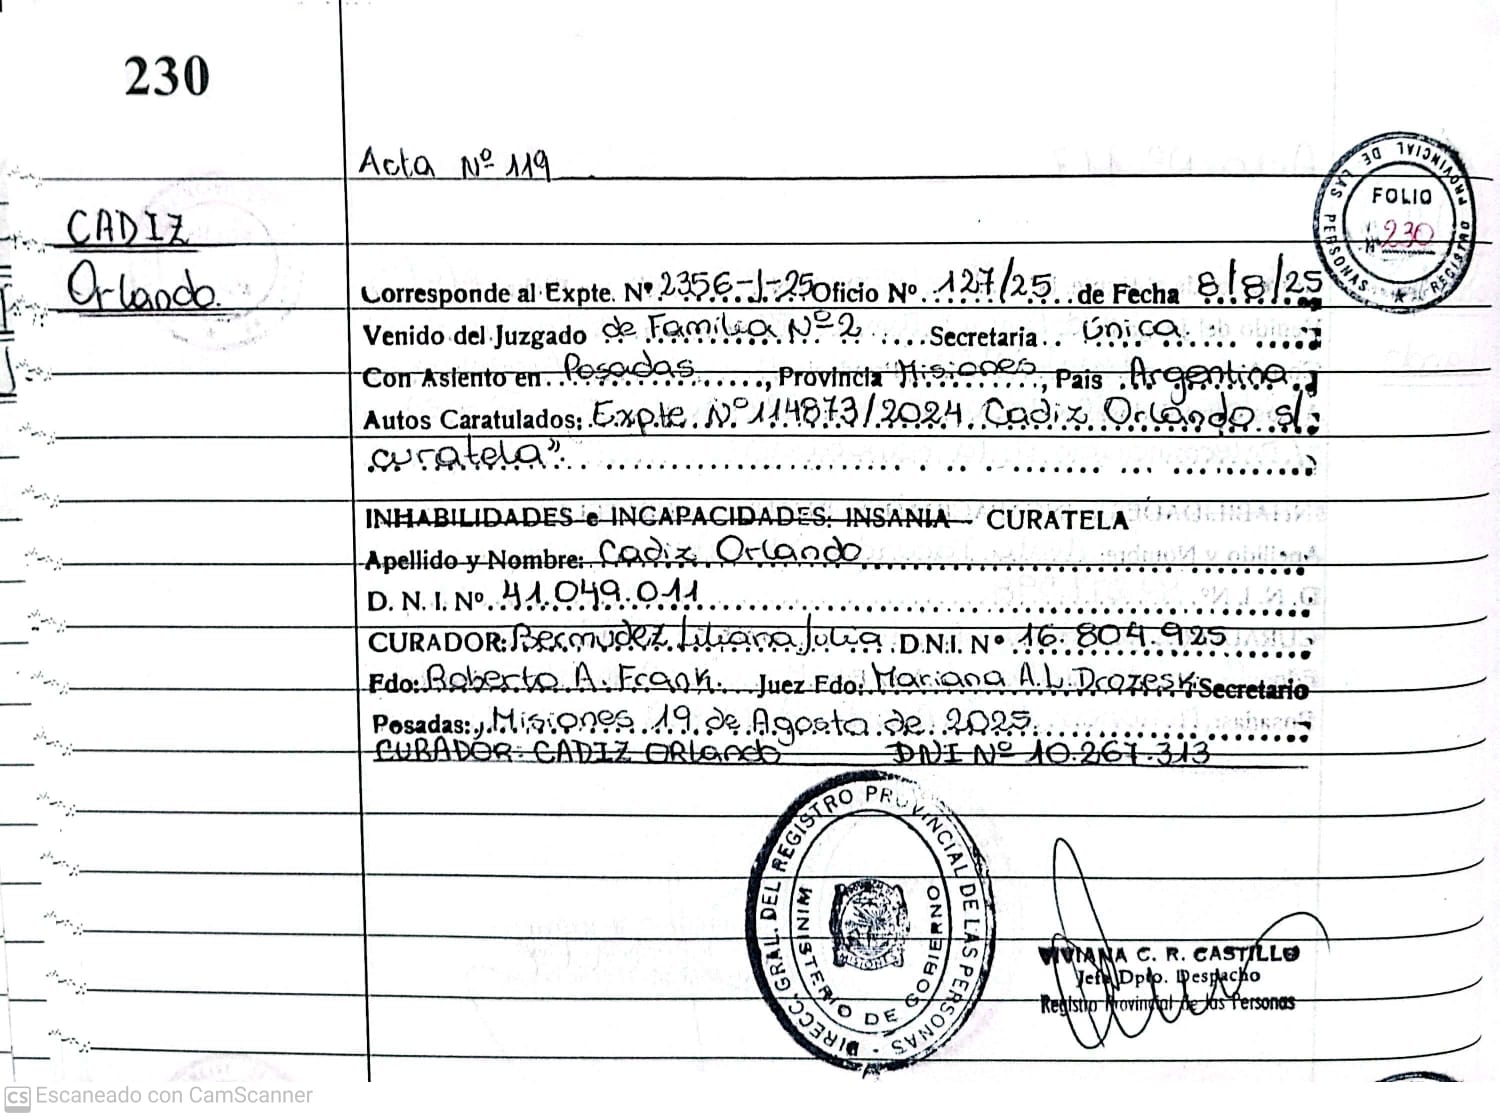 230
Acta Nº 119
CADIZ
Orlando.
REGISTRO PROVINCIAL DE LAS PERSONAS
FOLIO
Nº 230
Corresponde al Expte. Nº 2356-J-25 Oficio Nº 127/25 de Fecha 8/8/25
Venido del Juzgado de Familia Nº 2 Secretaria Única.
Con Asiento en Posadas, Provincia Misiones, Pais Argentina
Autos Caratulados: Expte. Nº 114873/2024 Cadiz Orlando s/
curatela"
INHABILIDADES e INCAPACIDADES: INSANIA - CURATELA
Apellido y Nombre: Cadiz Orlando
D. N. I. Nº 41.049.011
CURADOR: Bermudez Liliana Julia D.N.I. Nº 16.804.925
Fdo: Roberto A. Frank. Juez Fdo: Mariana A.L. Drozesk Secretario
Posadas:, Misiones 19 de Agosto de 2025.
CURADOR: CADIZ ORLando DNI Nº 10.267.313
DIRECC. GRAL. DEL REGISTRO PROVINCIAL DE LAS PERSONAS
MINISTERIO DE GOBIERNO
MISIONES
VIVIANA C. R. CASTILLO
Jefe Dpto. Despacho
Registro Provincial de las Personas
CS Escaneado con CamScanner